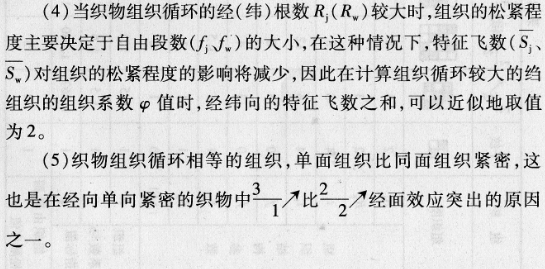 (4)当织物组织循环的经(纬)根数 Rj(Rw)较大时,组织的松紧程
度主要决定于自由段数(fj、fw)的大小,在这种情况下,特征飞数(S̅j、
S̅w)对组织的松紧程度的影响将减少,因此在计算组织循环较大的绉
组织的组织系数 φ 值时,经纬向的特征飞数之和,可以近似地取值
为2。
(5)织物组织循环相等的组织,单面组织比同面组织紧密,这
也是在经向单向紧密的织物中3/1↗比2/2↗经面效应突出的原因
之一。